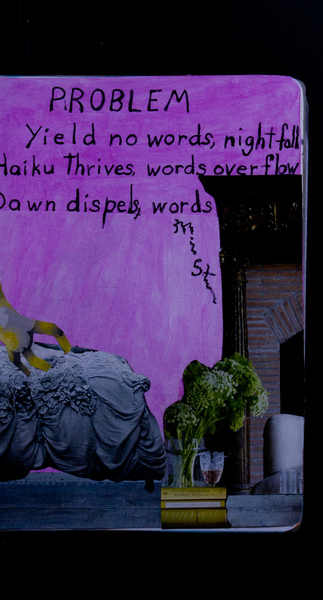 PROBLEM
Yield no words, nightfall
Haiku Thrives, words overflow
Dawn dispels, words